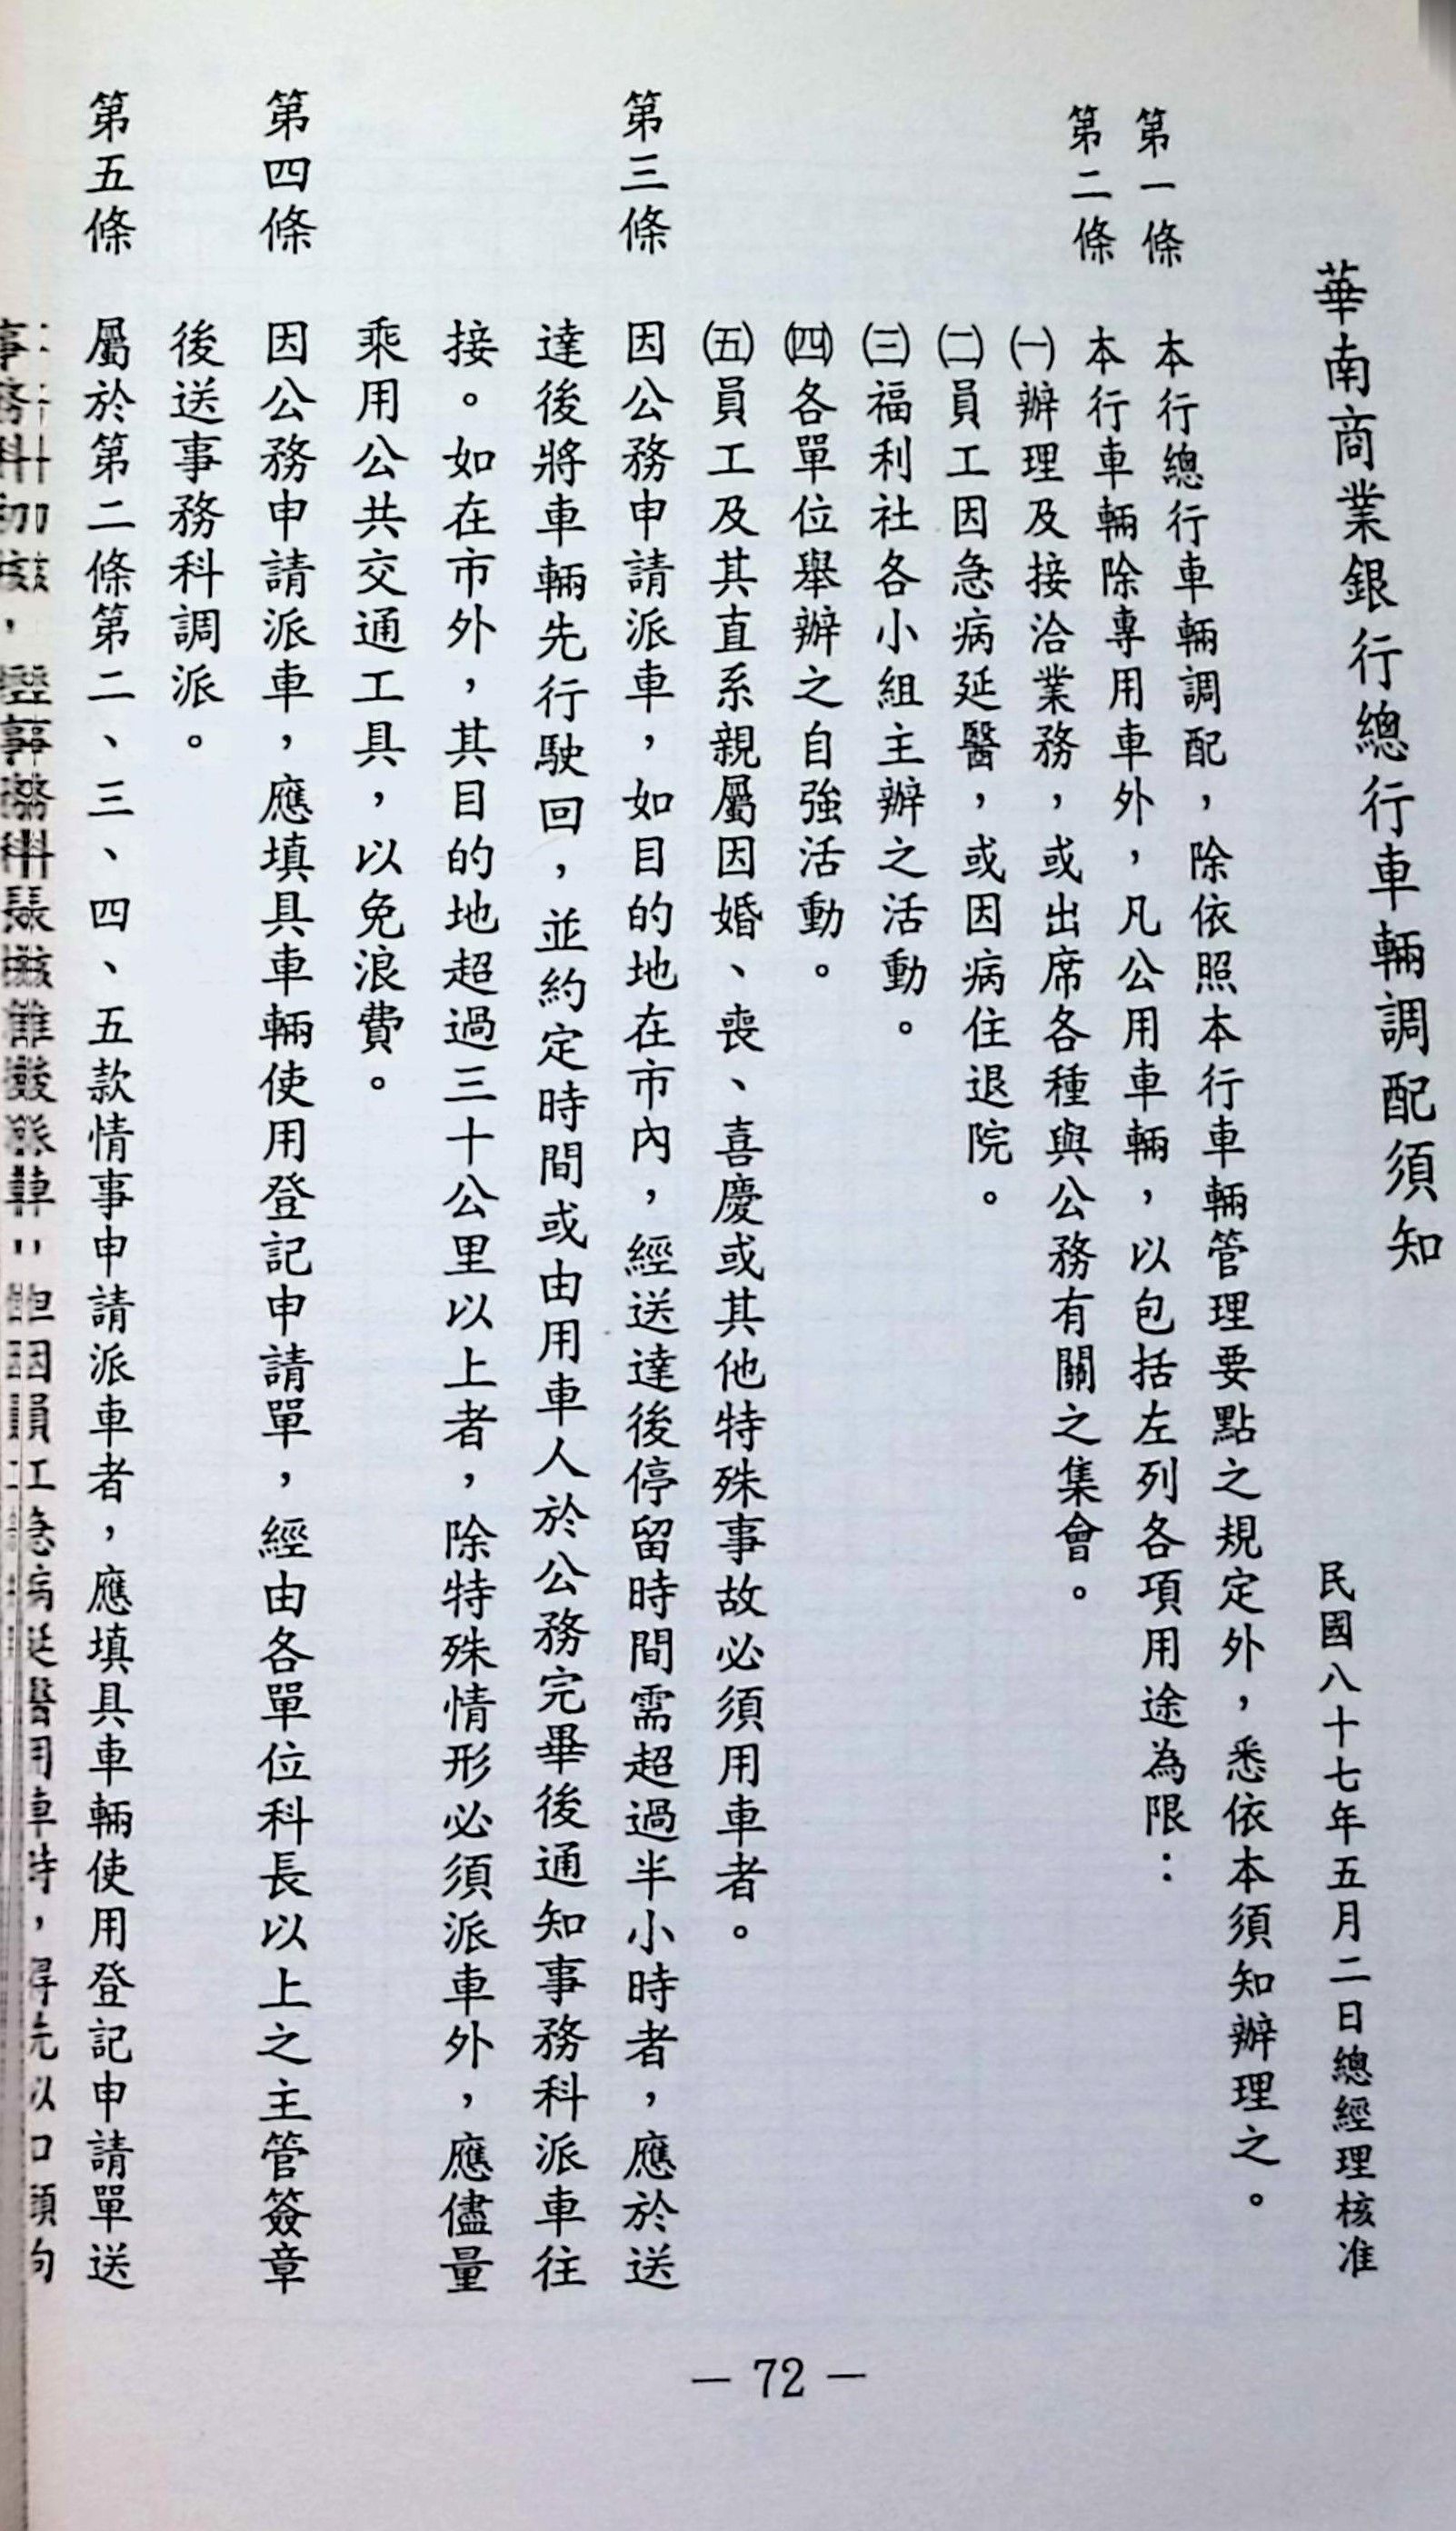 華南商業銀行總行車輛調配須知
民國八十七年五月二日總經理核准
第一條　本行總行車輛調配，除依照本行車輛管理要點之規定外，悉依本須知辦理之。
第二條　本行車輛除專用車外，凡公用車輛，以包括左列各項用途為限：
㈠辦理及接洽業務，或出席各種與公務有關之集會。
㈡員工因急病延醫，或因病住退院。
㈢福利社各小組主辦之活動。
㈣各單位舉辦之自強活動。
㈤員工及其直系親屬因婚、喪、喜慶或其他特殊事故必須用車者。
第三條　因公務申請派車，如目的地在市內，經送達後停留時間需超過半小時者，應於送
達後將車輛先行駛回，並約定時間或由用車人於公務完畢後通知事務科派車往
接。如在市外，其目的地超過三十公里以上者，除特殊情形必須派車外，應儘量
乘用公共交通工具，以免浪費。
第四條　因公務申請派車，應填具車輛使用登記申請單，經由各單位科長以上之主管簽章
後送事務科調派。
第五條　屬於第二條第二、三、四、五款情事申請派車者，應填具車輛使用登記申請單送
－72－